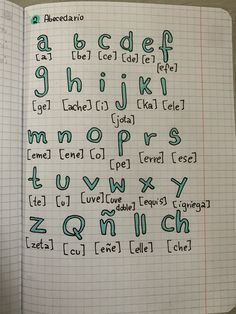 2 Abecedario
a b c d e f
[a] [be] [ce] [de] [e] [efe]
g h i j k l
[ge] [ache] [i] [jota] [ka] [ele]
m n o p r s
[eme] [ene] [o] [pe] [erre] [ese]
t u v w x y
[te] [u] [uve] [uve doble] [equis] [igriega]
z Q ñ ll ch
[zeta] [cu] [eñe] [elle] [che]